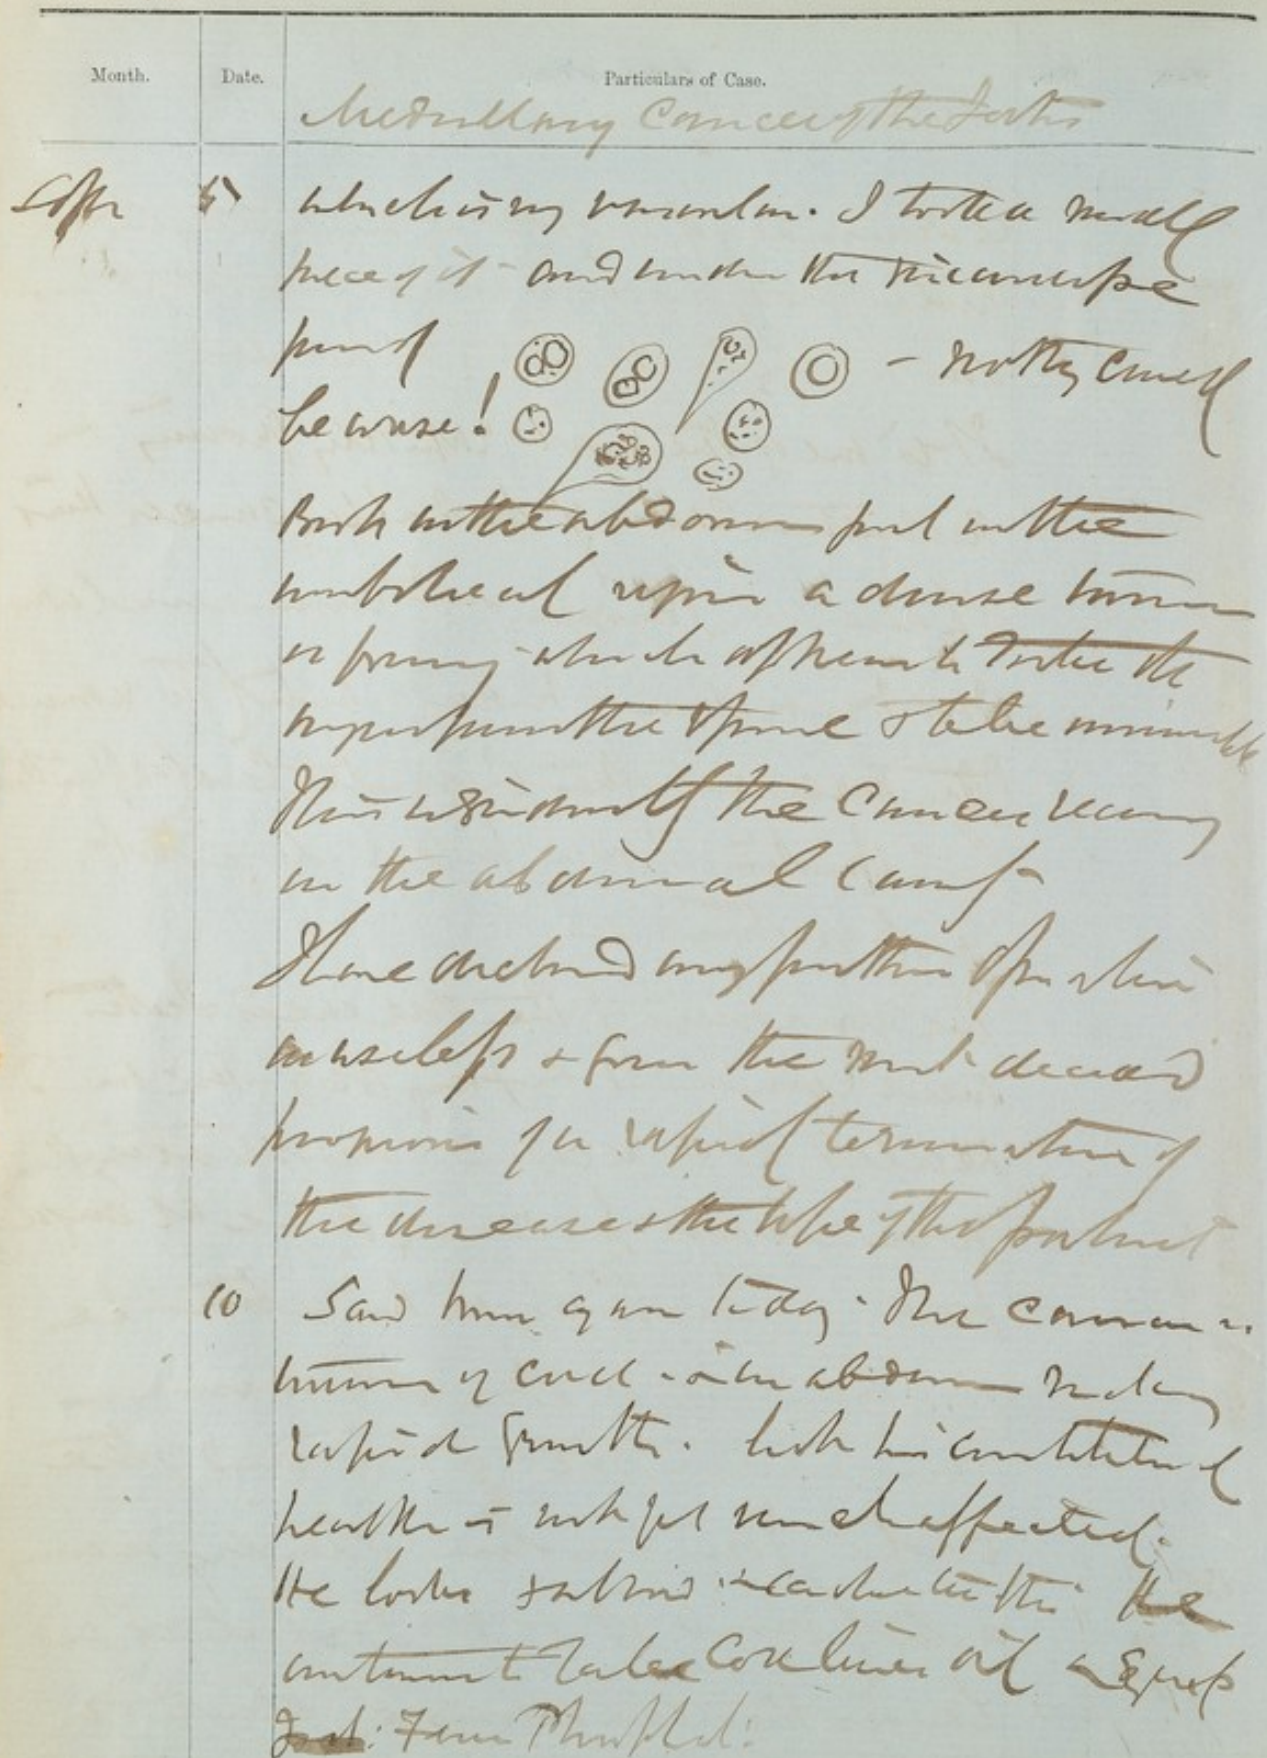 Month. Date. Particulars of Case.
Medullary Cancer of the Testis
Sepr 5 which is very vascular. I took a small
piece of it and under the microscope
found - nothing could
be worse!
But in the abdomen just in the
umbilical region a dense tumor
is forming which appears to
the spine & to be immovable
This is evidently the Cancer recurring
in the abdominal Cavity
I have declined any further Operation
as useless & given the most decided
prognosis of a rapid termination of
the disease & the life of the patient
10 Saw him again today. The Cancerous
tumor of cord & in abdomen making
rapid growth. but his constitutional
health is not yet much affected.
He looks sallow
continues to take Cod liver oil & Syrup
Ferri Phosphat: